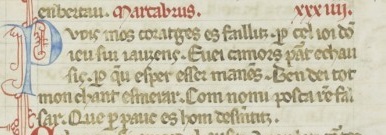 enbertau. Marcabrus. xxxiiij.
Puois mos coratges es faillitz. p cel ioi dō
ieu sui iauzenz. E uei camors part e chau
sis. p qu esper esser manēs. Ben dei tot
mon chant esmerar. Com no mi poscares fal
sar. Que p pauc es hom desmitz.